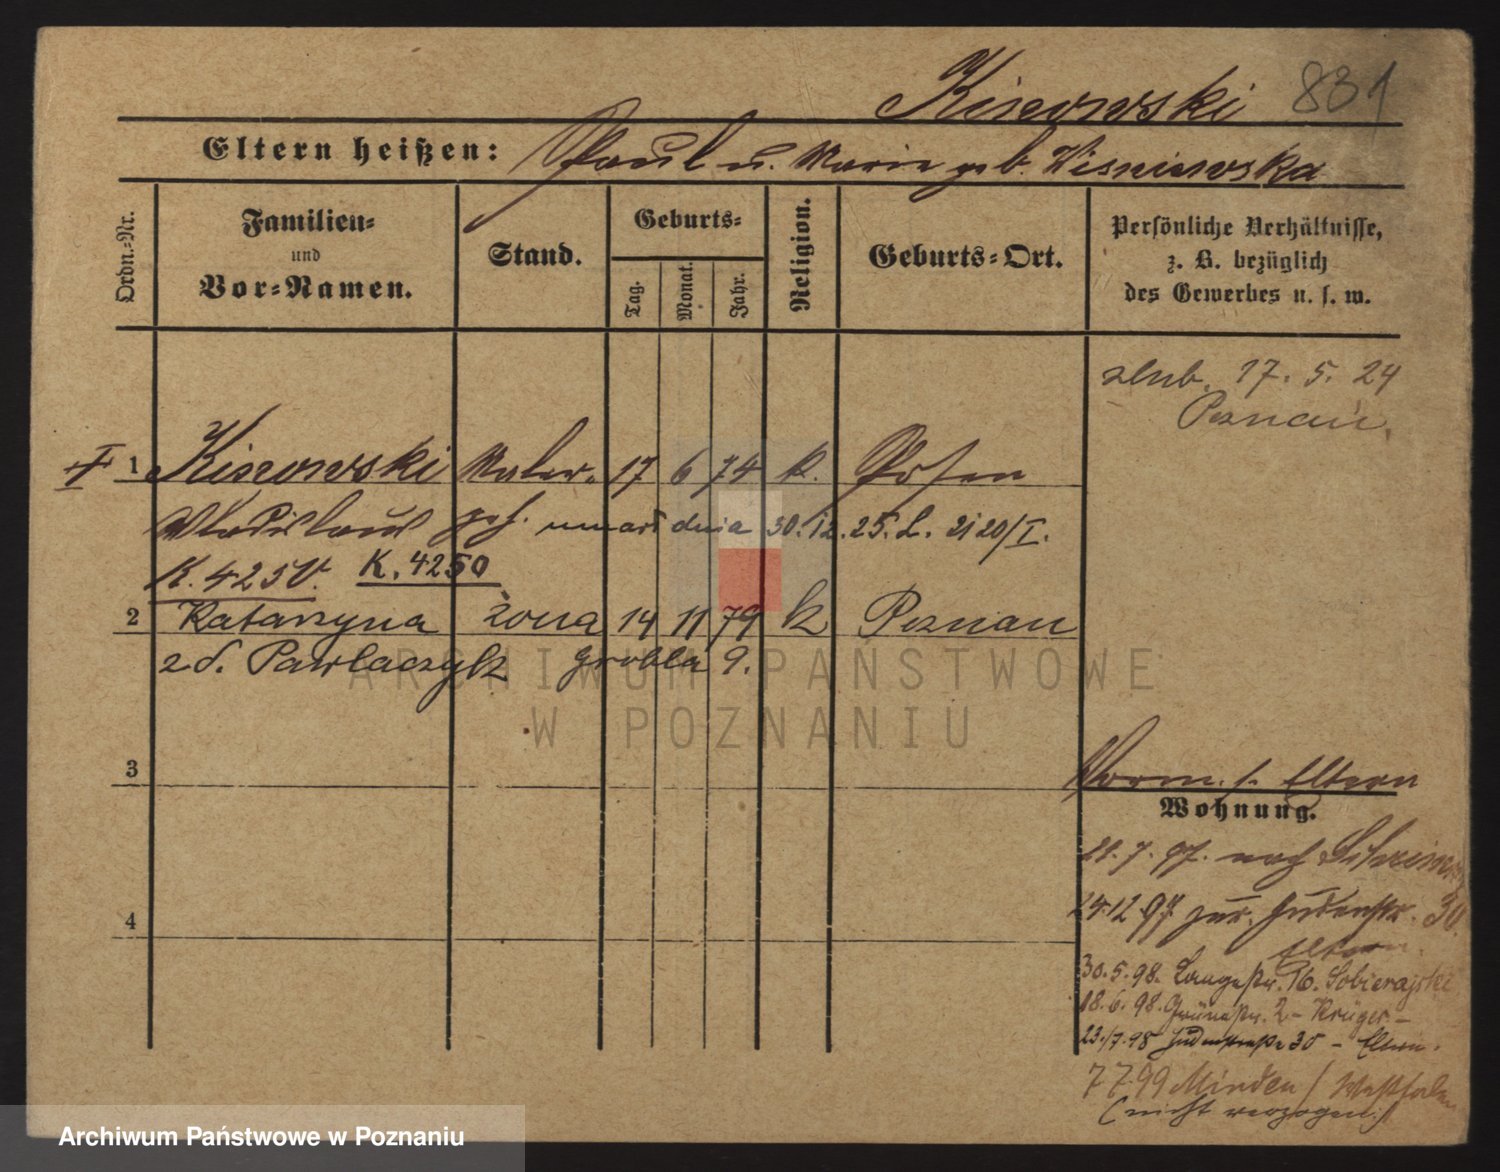 Kiszowski 831
Eltern heißen: Paul u. Marie geb. Wisniewska
Ordn.-Nr.
Familien-
und
Vor-Namen.
Stand.
Geburts-
Tag.
Monat.
Jahr.
Religion.
Geburts-Ort.
Persönliche Verhältnisse,
z. B. bezüglich
des Gewerbes u. s. w.
slub. 17. 5. 24
Poznań.
1 Kiszowski Maler. 17 6 74 k. Posen
Wladislaus umarł dnia 30.12.25. L. 2120/I.
K. 4250. K. 4250
2 Katarzyna żona 14 11 79 k Poznań
z d. Pawlaczyk Grobla 9.
3
Vorm. s. Eltern
Wohnung.
21. 7. 97. nach
4
24.12.97 zur. Judenstr. 30.
Eltern.
30.5.98. Langestr. 16. Sobierajski
18.6.98. Grünestr. 2 - Krüger -
23./7.98 Judenstraße 30 - Eltern.
7 7.99 Minden / Westfalen
(nicht verzogen.)
ARCHIWUM PAŃSTWOWE
W POZNANIU
Archiwum Państwowe w Poznaniu